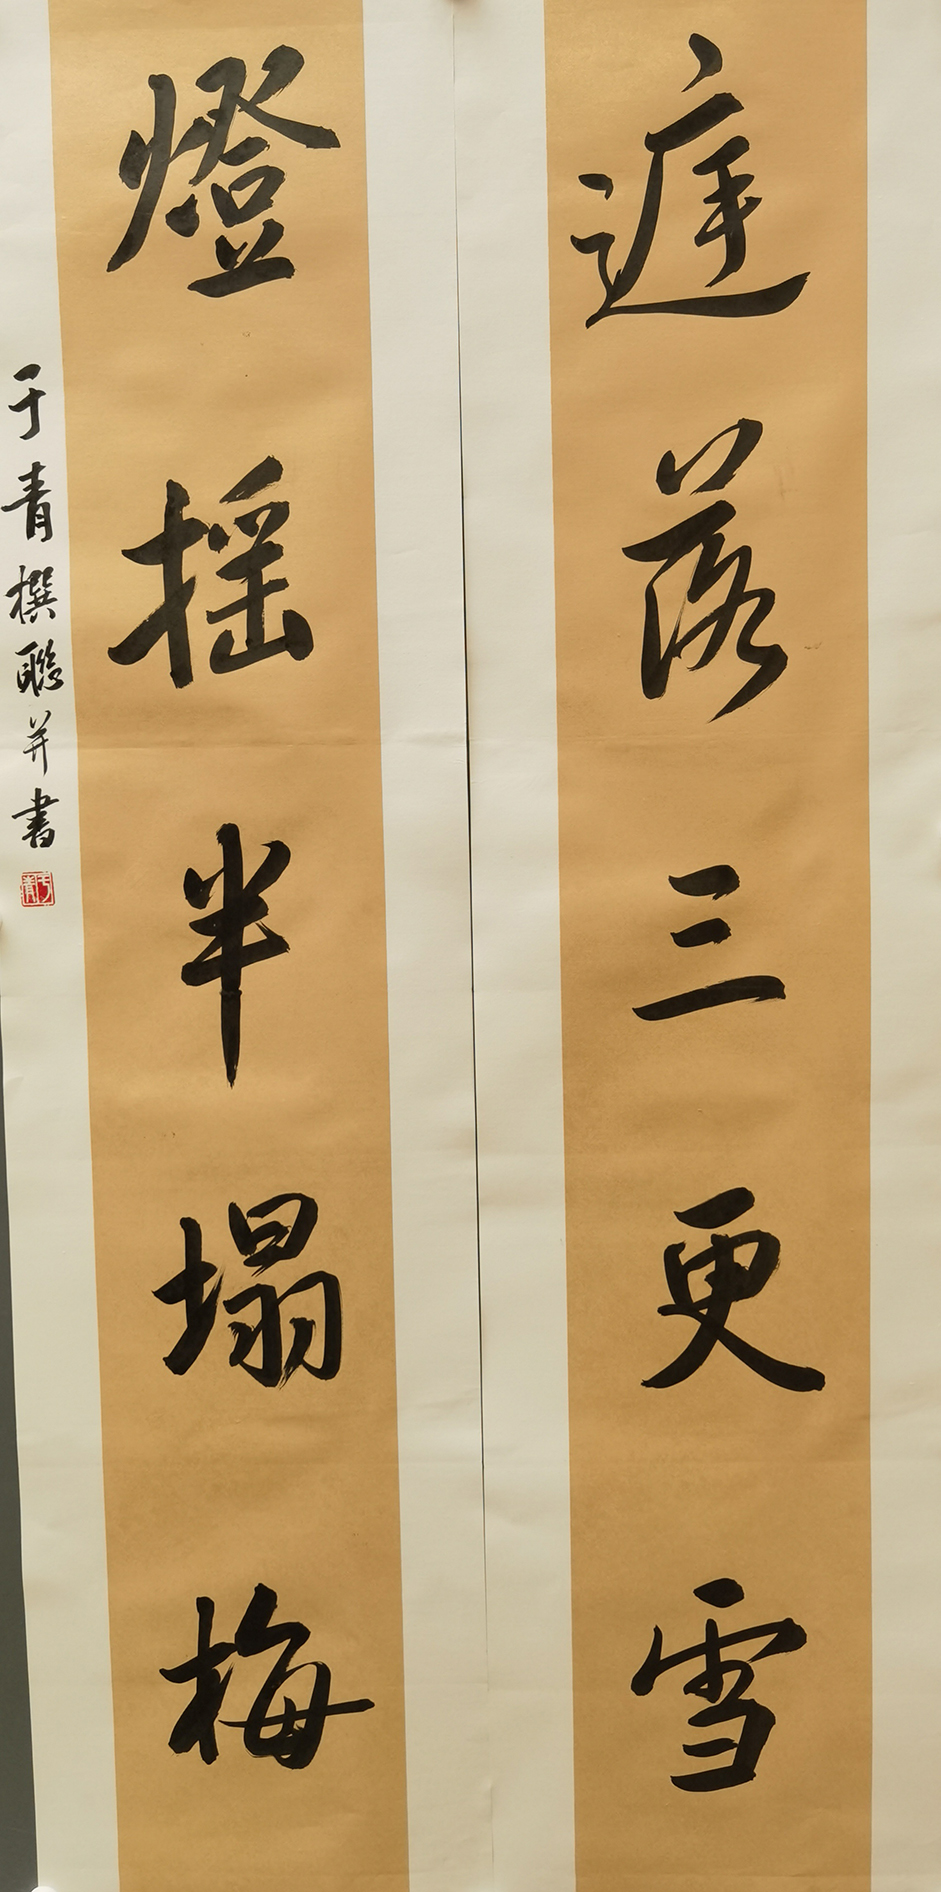 落三更雪
燈搖半塌梅
于青撰聯并書
于青